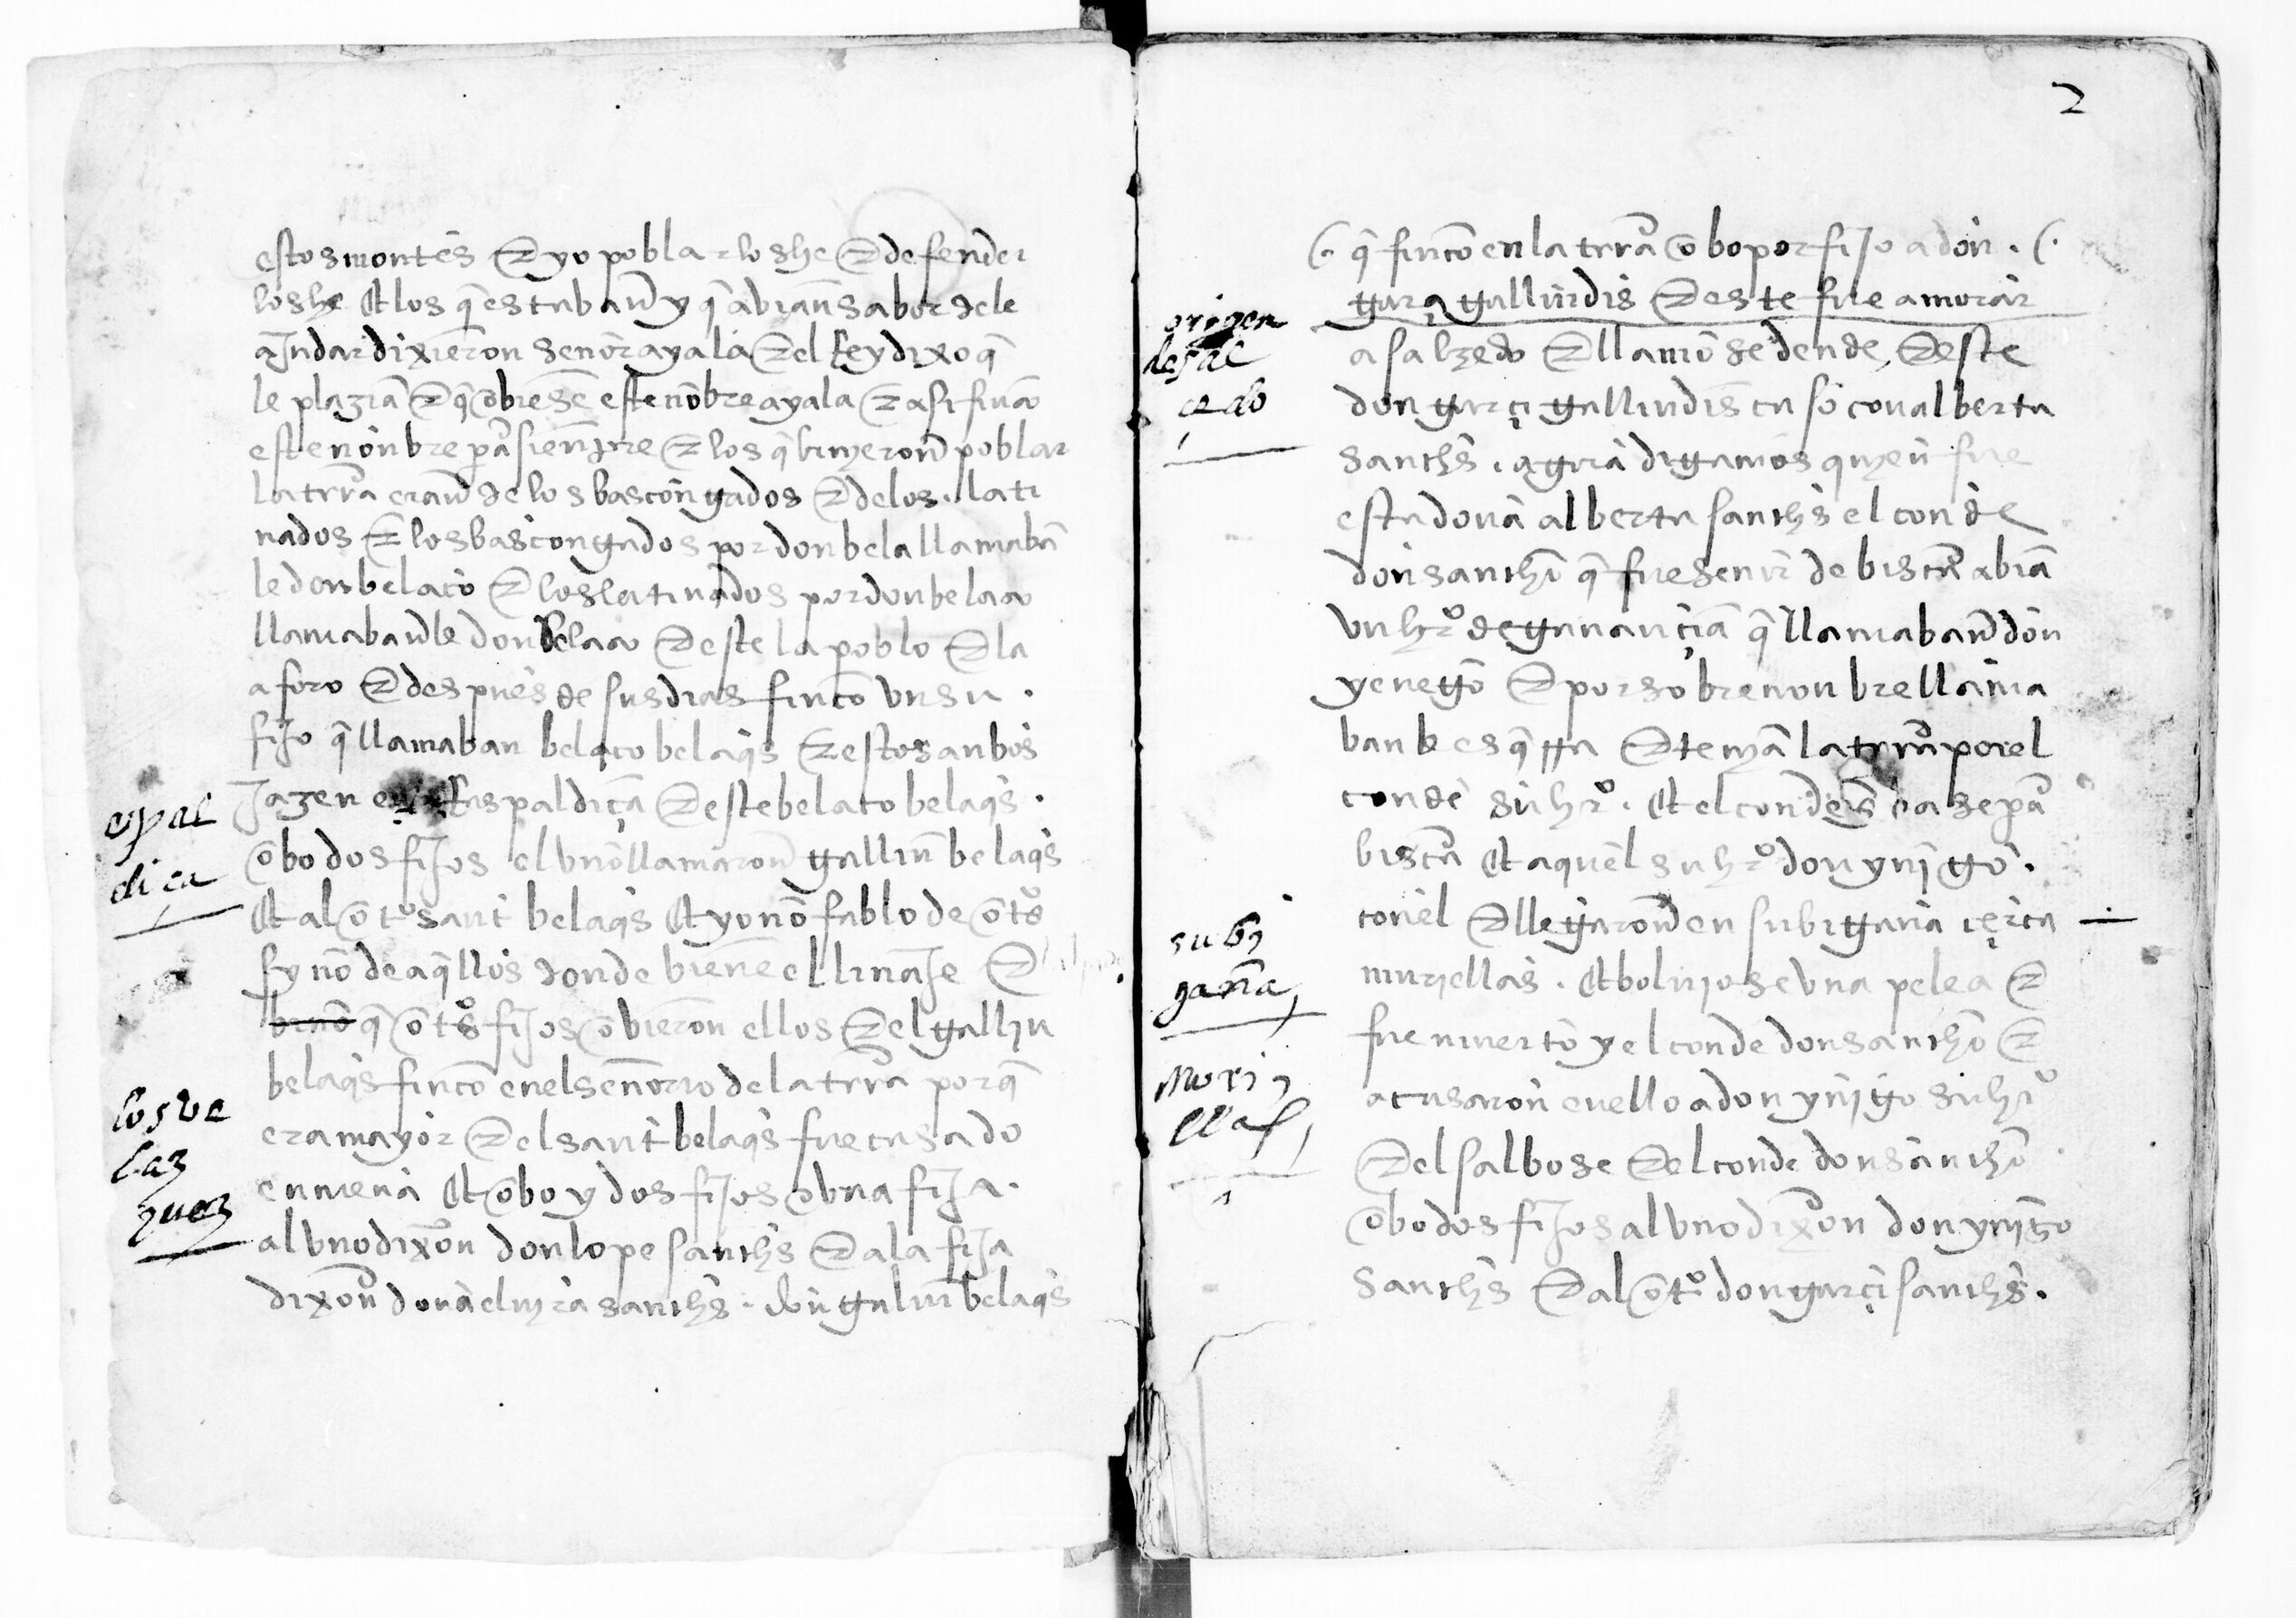 estos montes E yo poblar los he E defender
los he Et los q̄ estaban y q̄ abian sabor de le
ajudar dixieron senor ayala E el Rey dixo q̄
le plazia E q̄ obiese este nōbre ayala E asi finco
este nonbre pā sienpre E los q̄ binyeron poblar
la trrā eran de los bascongados E de los lati
nados E los bascongados por don bela llamabā
le don belaco E los latinados por don belaco
llamabanle don belaco E este la poblo E la
aforo E despues de sus dias finco un su
fijo q̄ llamaban belaco belaqs E estos anbos
Jazen en Respaldiça E este belaco belaqs
obo dos fijos el uno llamaron gallin belaqs
Et al otº sant belaqs Et yo no fablo de otºs
sy no de aq̄llos donde biene el linaje E
q̄ otºs fijos obieron ellos E el galliu
belaqs finco en el senorio de la trrā porq̄
era mayor E el sant belaqs fue casado
en mena Et obo y dos fijos E una fija
al uno dixōn don lope sanchs E a la fija
dixōn dona elvyra sanchs . don galin belaqs
espal
diça
los ve
laz
quez
2
q̄ finco en la trrā obo por fijo a don
garçi gallindis E este fue a morar
a salzedo E llamose dende E este
don garçi gallindis caso con alberta
sanchs . agora digamos quyen fue
esta dona alberta sanchs el conde
don sanchō q̄ fue senor de biscā abia
un hrº de ganançia q̄ llamaban don
yenego E por sobrenonbre llama
banle esq̄rra E tenya la trrā por el
conde su hrº . Et el conde ybase pā
biscā Et aquel su hrº don ynigo
con el E llegaron en subigana çerca
muriellas . Et bolviose una pelea E
fue muerto y el conde don sanchō E
acusaron en ello a don ynigo su hrº
E el salbose E el conde don sanchō
obo dos fijos al uno dixōn don ynigo
Sanchs E al otº don garçi sanchs .
origen
de sal
cedo
subi
gana
Mori
llas